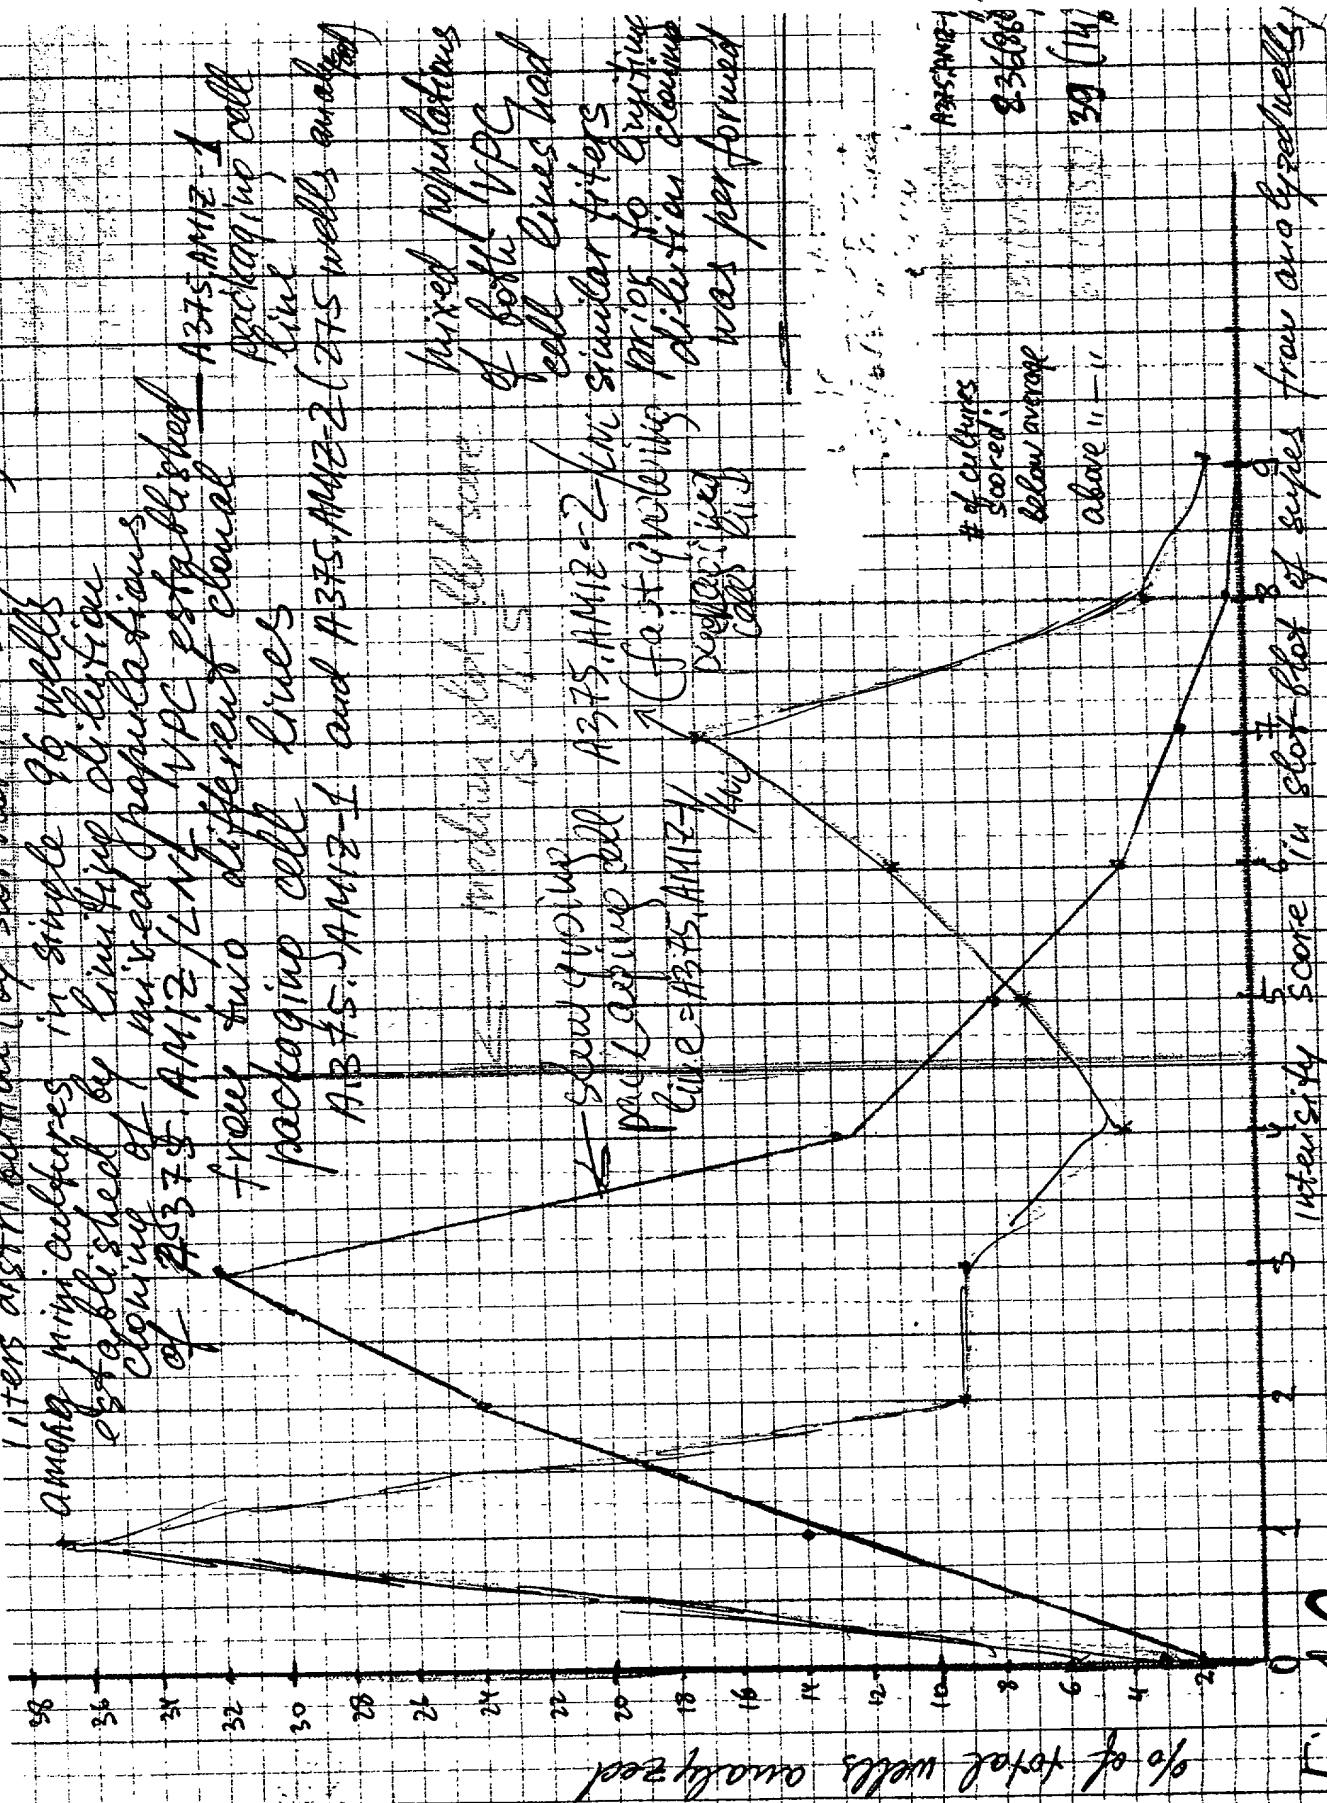 titers distribution (by slot
among minicultures in single 96 wells
established by limiting dilution
cloning of mixed populations
of A375.AMIZ/LNS VPC established
from two different clonal
packaging cell lines
A375.AMIZ-1 and A375.AMIZ-2 (275 wells
A375.AMIZ-1
packaging cell
line
medium slot-blot score
is 5
mixed populations
of both VPC
cell lines had
similar titers
prior to limiting
dilution cloning
was performed
slow growing
packaging cell
line = A375.AMIZ-1/
A375.AMIZ-2
(fast growing
packaging
cell
# of cultures
scored:
below average
above "—"
39 (14
% of total wells analyzed
38
36
34
32
30
28
26
24
22
20
18
16
14
12
10
8
6
4
2
0
1
2
3
4
5
6
7
8
9
intensity score in slot-blot of supes from analyzed wells